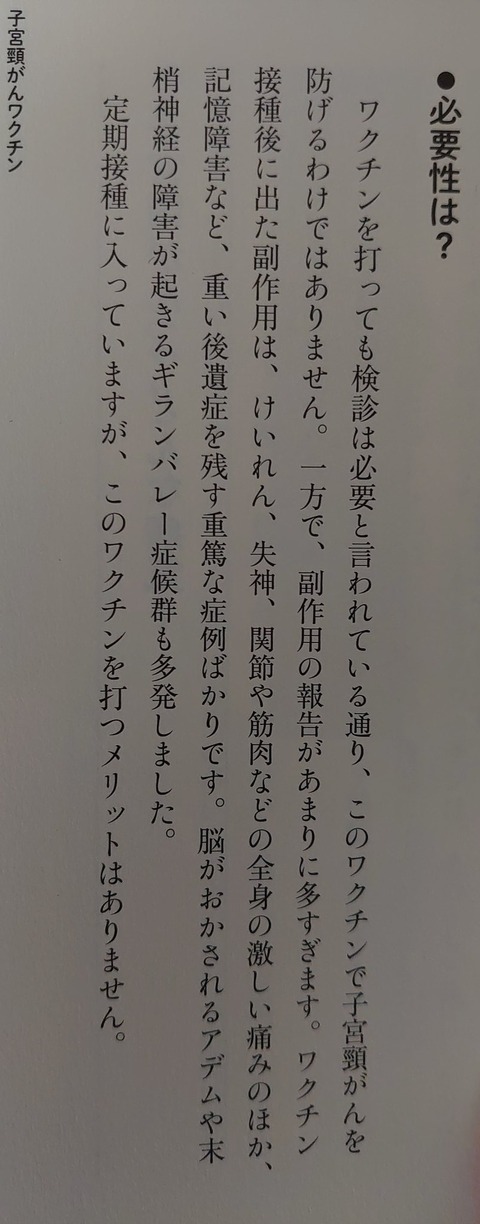 ●必要性は？
ワクチンを打っても検診は必要と言われている通り、このワクチンで子宮頸がんを
防げるわけではありません。一方で、副作用の報告があまりに多すぎます。ワクチン
接種後に出た副作用は、けいれん、失神、関節や筋肉などの全身の激しい痛みのほか、
記憶障害など、重い後遺症を残す重篤な症例ばかりです。脳がおかされるアデムや末
梢神経の障害が起きるギランバレー症候群も多発しました。
定期接種に入っていますが、このワクチンを打つメリットはありません。
子宮頸がんワクチン